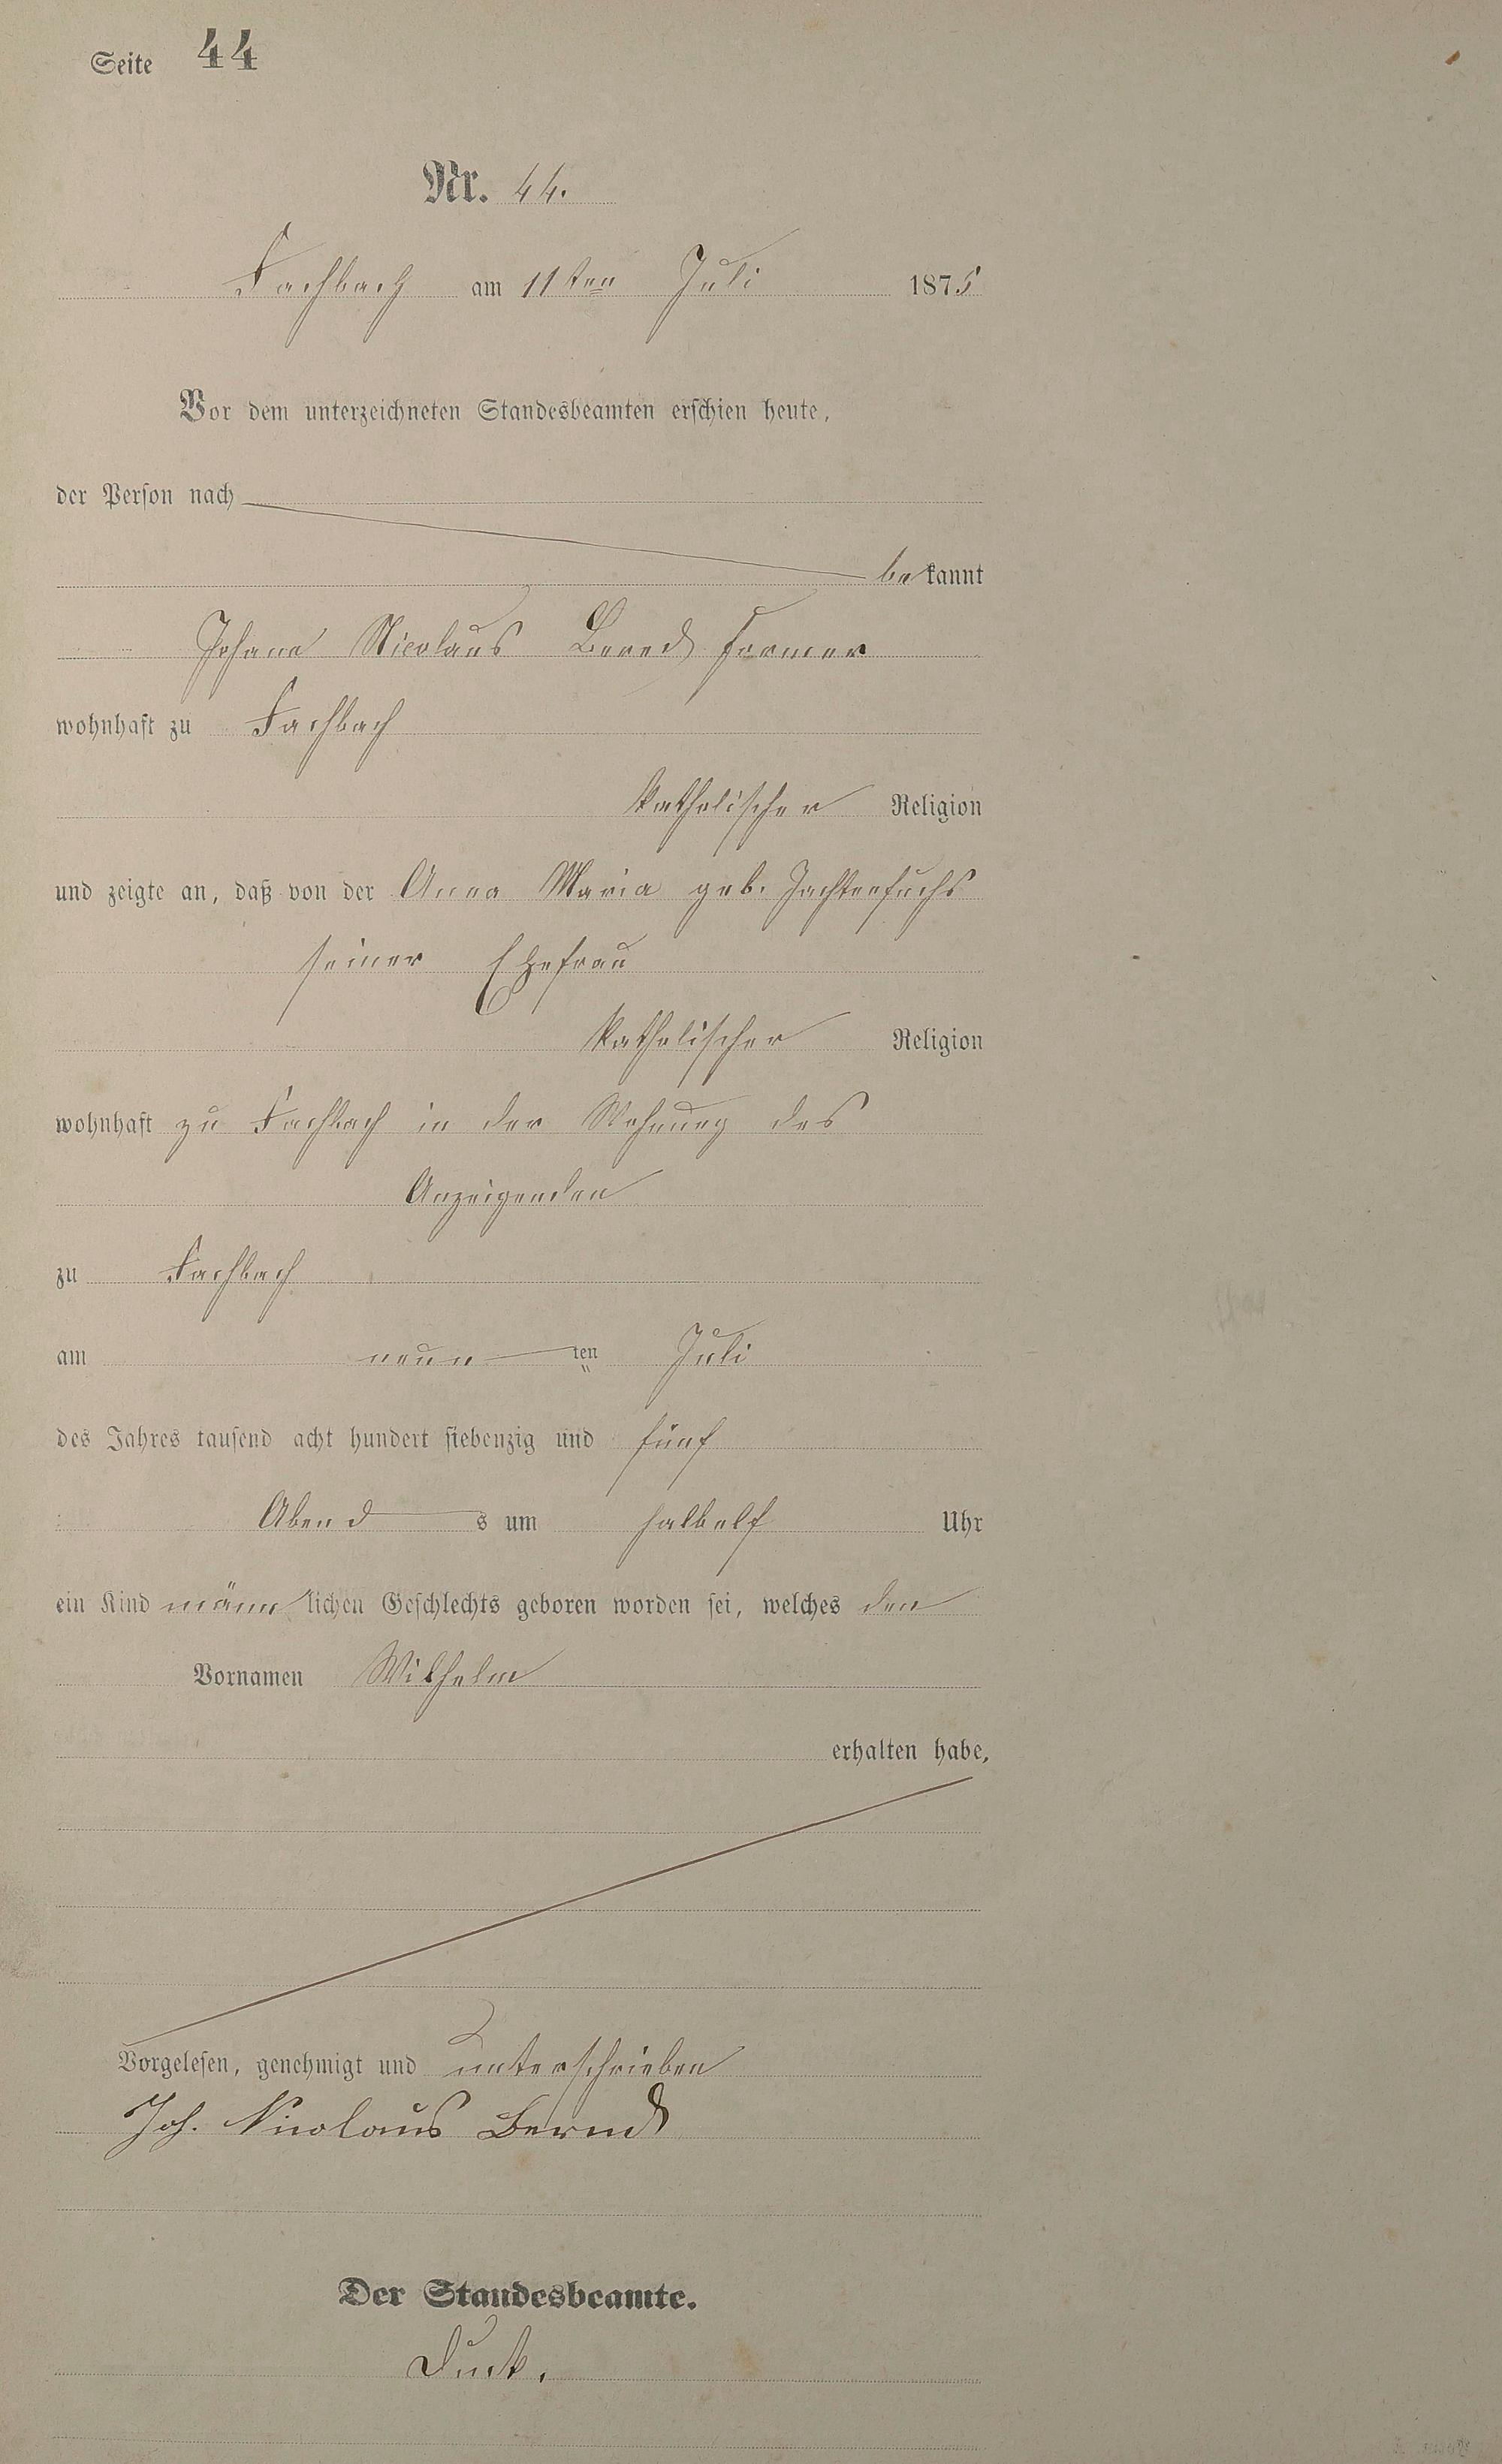 Seite 44
Nr. 44.
Fachbach am 11ten Juli 1875
Vor dem unterzeichneten Standesbeamten erschien heute,
der Person nach
bekannt
Johann Nicolaus Bernd Former
wohnhaft zu Fachbach
katholischer Religion
und zeigte an, daß von der Anna Maria geb. Jachtenfuchs
seiner Ehefrau
katholischer Religion
wohnhaft zu Fachbach in der Wohnung des
Anzeigenden
zu Fachbach
am neun ten Juli
des Jahres tausend acht hundert siebenzig und fünf
Abend s um halbelf Uhr
ein Kind männlichen Geschlechts geboren worden sei, welches den
Vornamen Wilhelm
erhalten habe,
Vorgelesen, genehmigt und unterschrieben
Joh. Nicolaus Bernd
Der Standesbeamte.